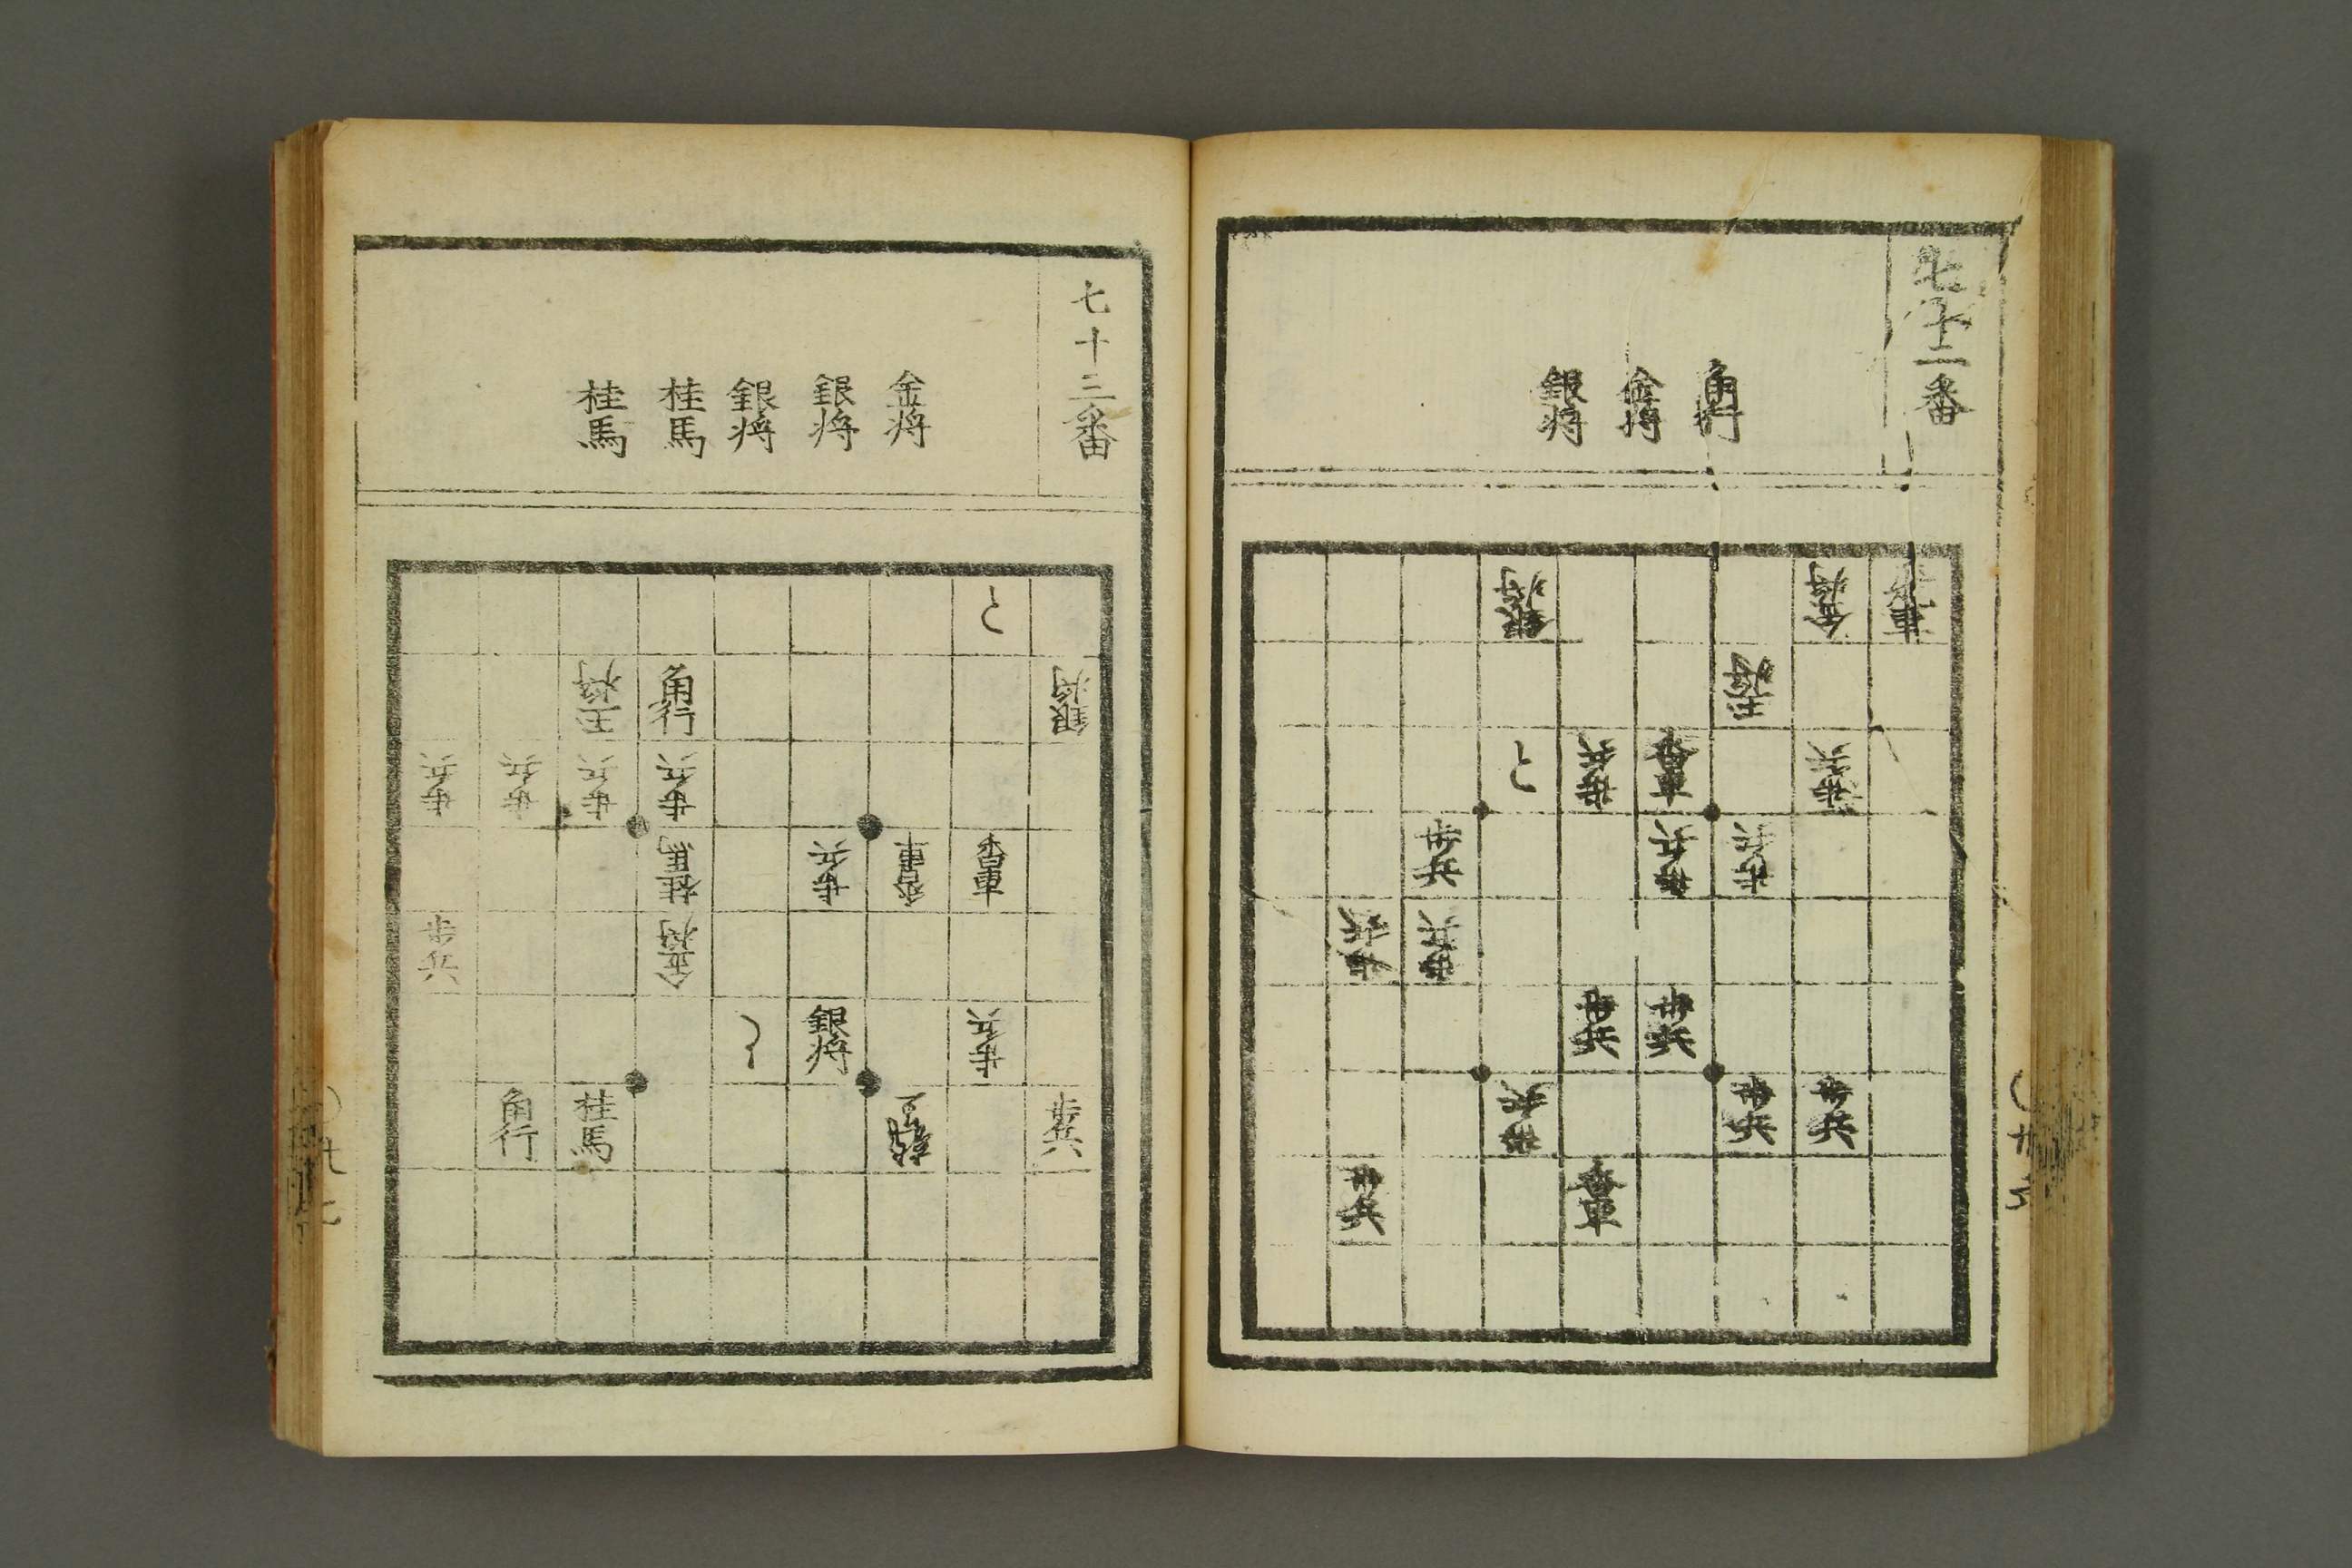 七十二番
角行
金将
銀将
銀将 金将 香車
玉将
と 歩兵 香車 歩兵
歩兵 歩兵 歩兵
歩兵 歩兵
歩兵 歩兵
歩兵 歩兵 歩兵
歩兵 香車
七十三番
金将
銀将
銀将
桂馬
桂馬
と
玉将 角行 銀将
歩兵 歩兵 歩兵 歩兵
桂馬 歩兵 香車 香車
歩兵 金将
と 銀将 歩兵
角行 桂馬 歩兵